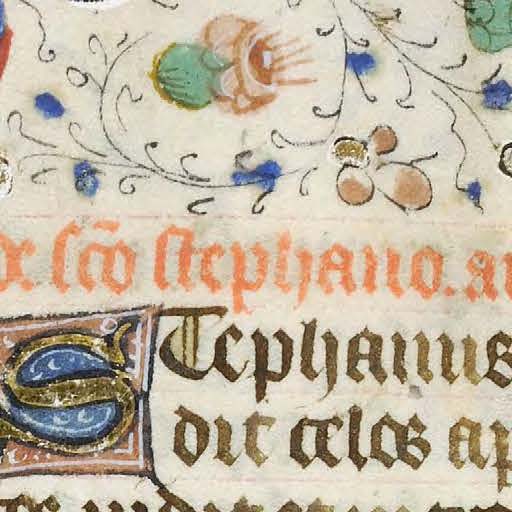 De sco stephano. an
STephanus
dit celos ap